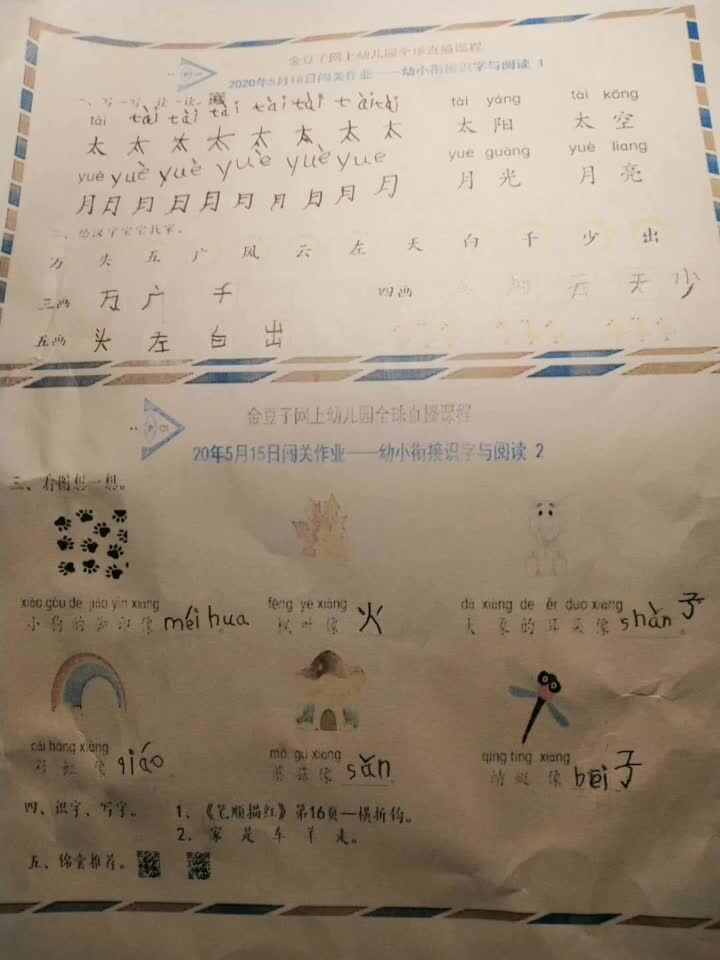 金豆子网上幼儿园全球直播课程
2020年5月16日闯关作业——幼小衔接识字与阅读 1
一、写一写，读一读。
tài tài tài tài tài tài tài tài tài yáng tài kōng
太 太 太 太 太 太 太 太 太 阳 太 空
yuè yuè yuè yuè yuè yue yue guāng yuè liang
月 月 月 月 月 月 月 月 月 月 月 光 月 亮
二、给汉字宝宝找家。
万 头 五 广 风 云 左 天 白 千 少 出
三画 万 广 千 四画 云 天 少
五画 头 左 白 出
金豆子网上幼儿园全球直播课程
20年5月15日闯关作业——幼小衔接识字与阅读 2
三、看图想一想。
xiǎo gǒu de jiǎo yìn xiàng fēng yè xiàng dà xiàng de ěr duo xiàng
小狗的脚印像 méi hua 枫叶像 火 大象的耳朵像 shàn 子。
cǎi hóng xiàng mó gu xiàng qīng tíng xiàng
彩虹像 qiáo 蘑菇像 sǎn 蜻蜓像 bēi 子
四、识字、写字。 1、《笔顺描红》第16页—横折钩。
2、家 是 车 羊 走。
五、锦囊推荐。